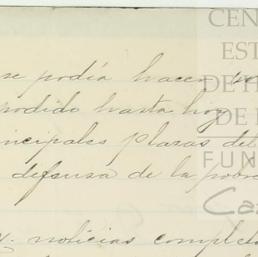 se podía hacer
podido hasta hoy
ncipales plazas del
defensa de la pobre
y. noticias complet
CEN
EST
DE H
DE
FUN
Ca